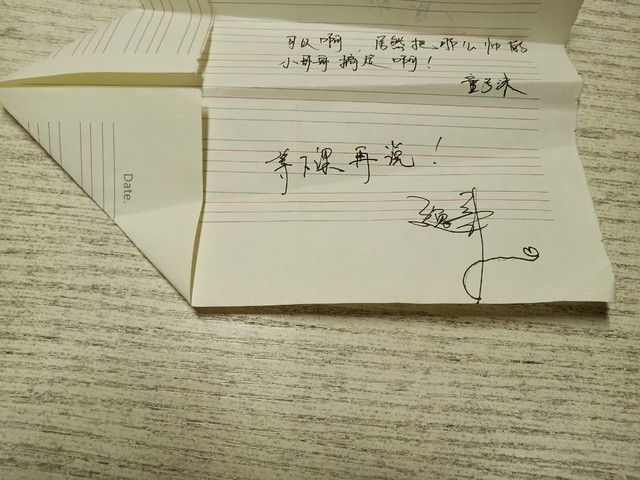 可以啊，居然把那么帅的
小哥哥搞定啊！
童子沫
等下课再说！
Date.